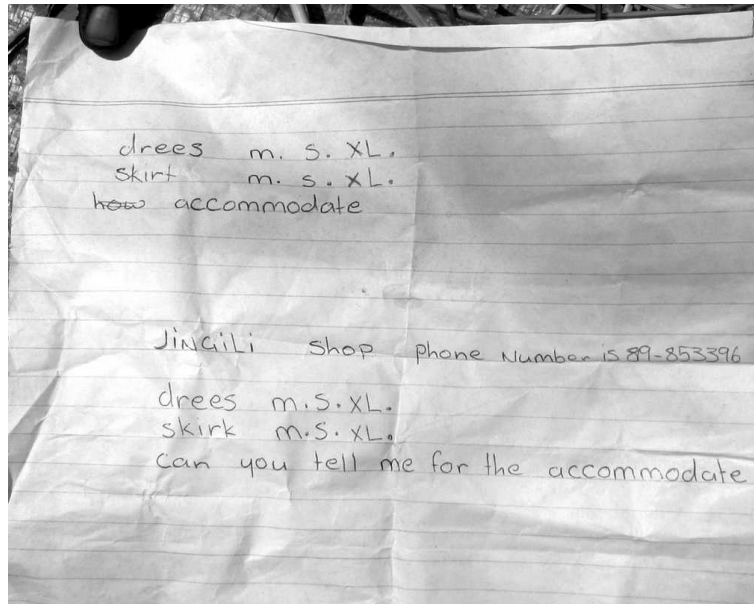 drees m. S. XL.
Skirt m. S. XL.
how accommodate
JiNGiLi Shop phone Number is 89-853396
drees m.S.XL.
skirk m.S.XL.
Can you tell me for the accommodate